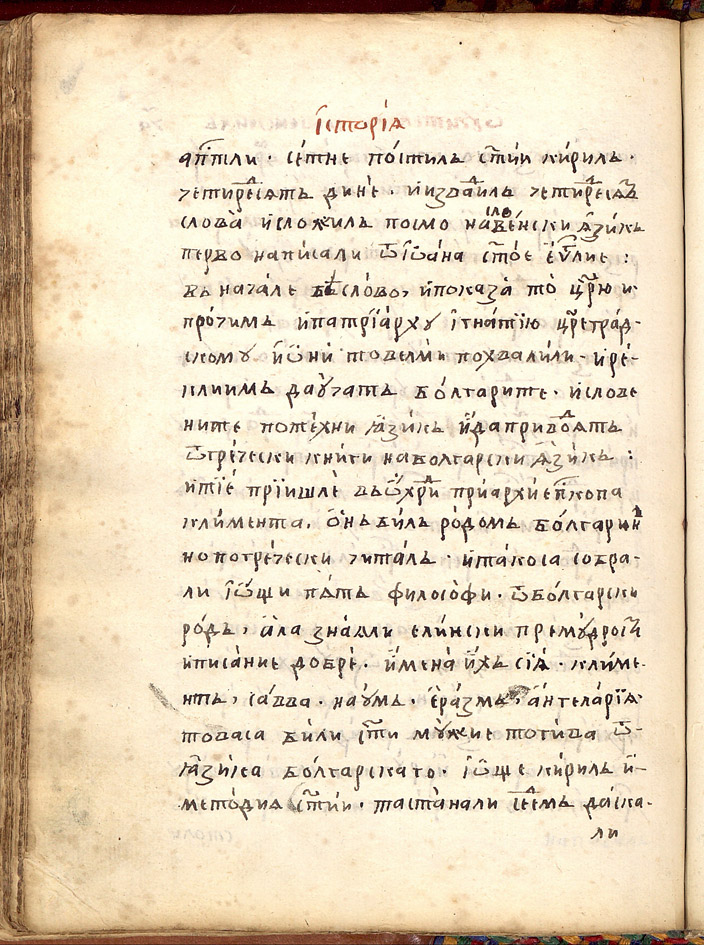 Їсторїѧ
апⷭ҇тли · сѐтне по́стилъ ст҃їи ки́рилъ ·
четирⷣе́сѧтъ дине̏ · и҆и҆звади́лъ четирⷣе́сѧтъ
слова̀ и҆сложи́лъ посмо наслове́нски ꙗ҆зи́къ
перво написали ѿїѡа́на ст҃о́е є҆ѵⷢ҇лие :
въ нача́ле бѣ̀ сло́во, и҆показа̀ то цр҃ю и҆
про́чимъ и҆патрїа́рху ї҆гна́тїю цр҃егра́д-
скому и҆ѡ҆ни̏ товелмѝ похвали́ли · и҆ре́-
кли имъ дау҆ча́тъ бо́лгарите · и҆слове
ните поте́хни ꙗ҆зи́къ и҆да приво́дѧтъ
ѿгре́чески кни́ги на болгарски ꙗ҆зи́къ :
и҆тїе́ прїи҆шлѐ въѡ҆хри́дⷣ приа́рхиєп҃копа
кли́мента, ѡ҆́нъ би́лъ ро́домъ бо́лгаринъ
но погре́чески чита́лъ · и҆та́коса собра-
ли ї҆ѡ҆щи пѧ́тъ филосо̀фи · ѿбо́лгарски
ро́дъ, а҆ла зна́ѧли е́лински прему́дрости
и҆писа́ние добрѐ · и҆мена̀ и҆́хъ сїѧ̀ · кли́ме-
нтъ, са́вва · нау́мъ · є҆ра́змъ, а҆́нгеларїѧ
това са били ст҃и му́жие потива ѿ-
ꙗ҆зи́ка бо́лгарскаго · ї҆ѡ҆ще ки́рилъ и҆
мето́диѧ ст҃їи · та ста́нали се́дⷣмъ да́ска-
ли